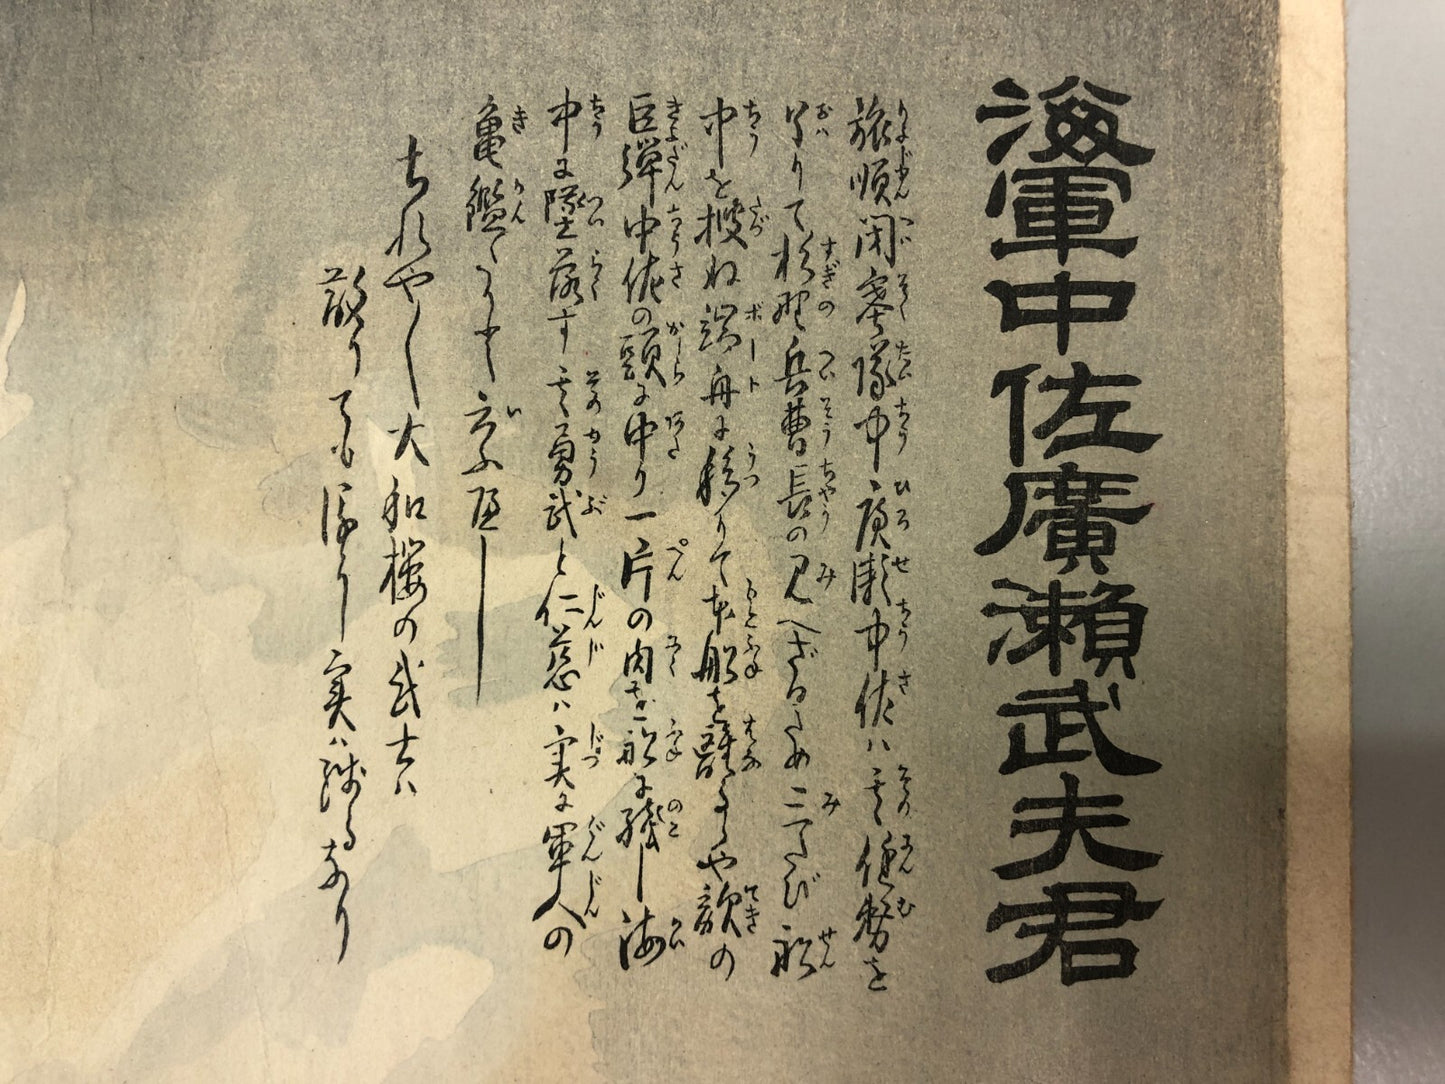 海軍中佐廣瀬武夫君
旅順閉塞隊中、廣瀬中佐ハ其任務を
了りて杉野兵曹長の見へざるため三たび船
中を捜ね端舟に移りて本船を離るゝや敵の
巨弾中佐の頭に中り一片の肉を船に残し海
中に墜落す其勇武と仁慈ハ実に軍人の
亀鑑なりと云ふ可し
大和桜の武士ハ
散りても後に実ハ残るなり